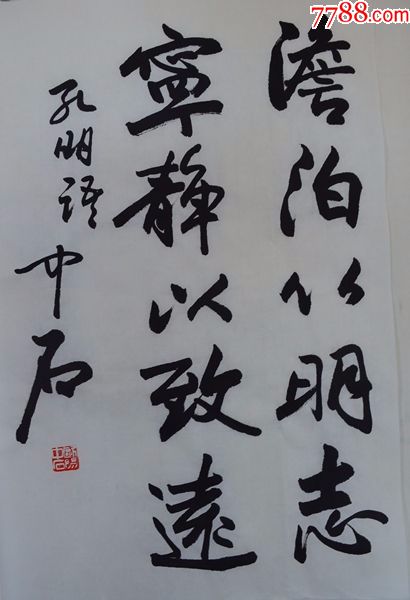 澹泊以明志
寧靜以致遠
孔明語
中石
歐陽中石
7788.com